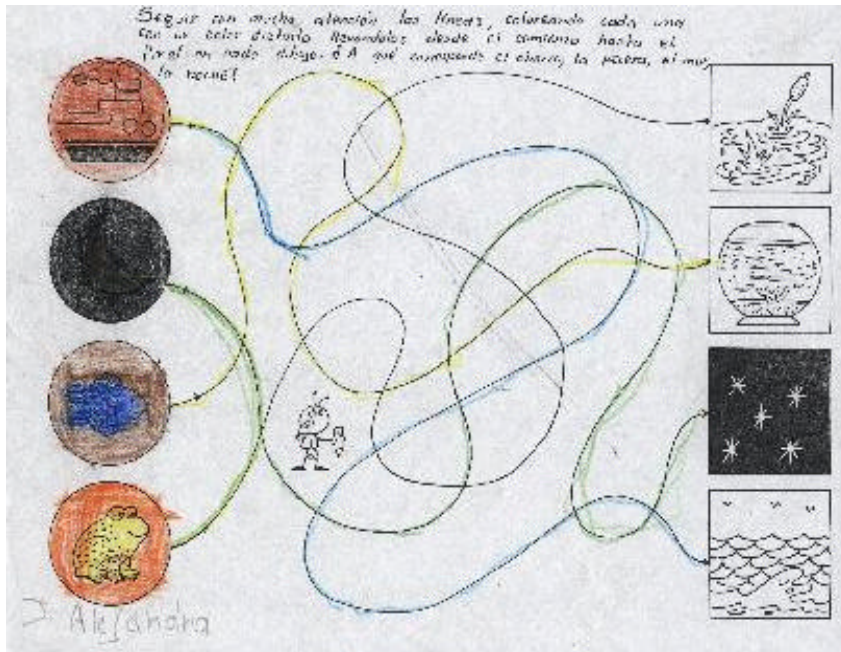 Seguir con mucha atención las líneas, coloreando cada una
con un color distinto llevándolas desde el comienzo hasta el
final en cada dibujo. ¿A qué corresponde el charco, la pecera, el mar,
la noche?
Alejandra